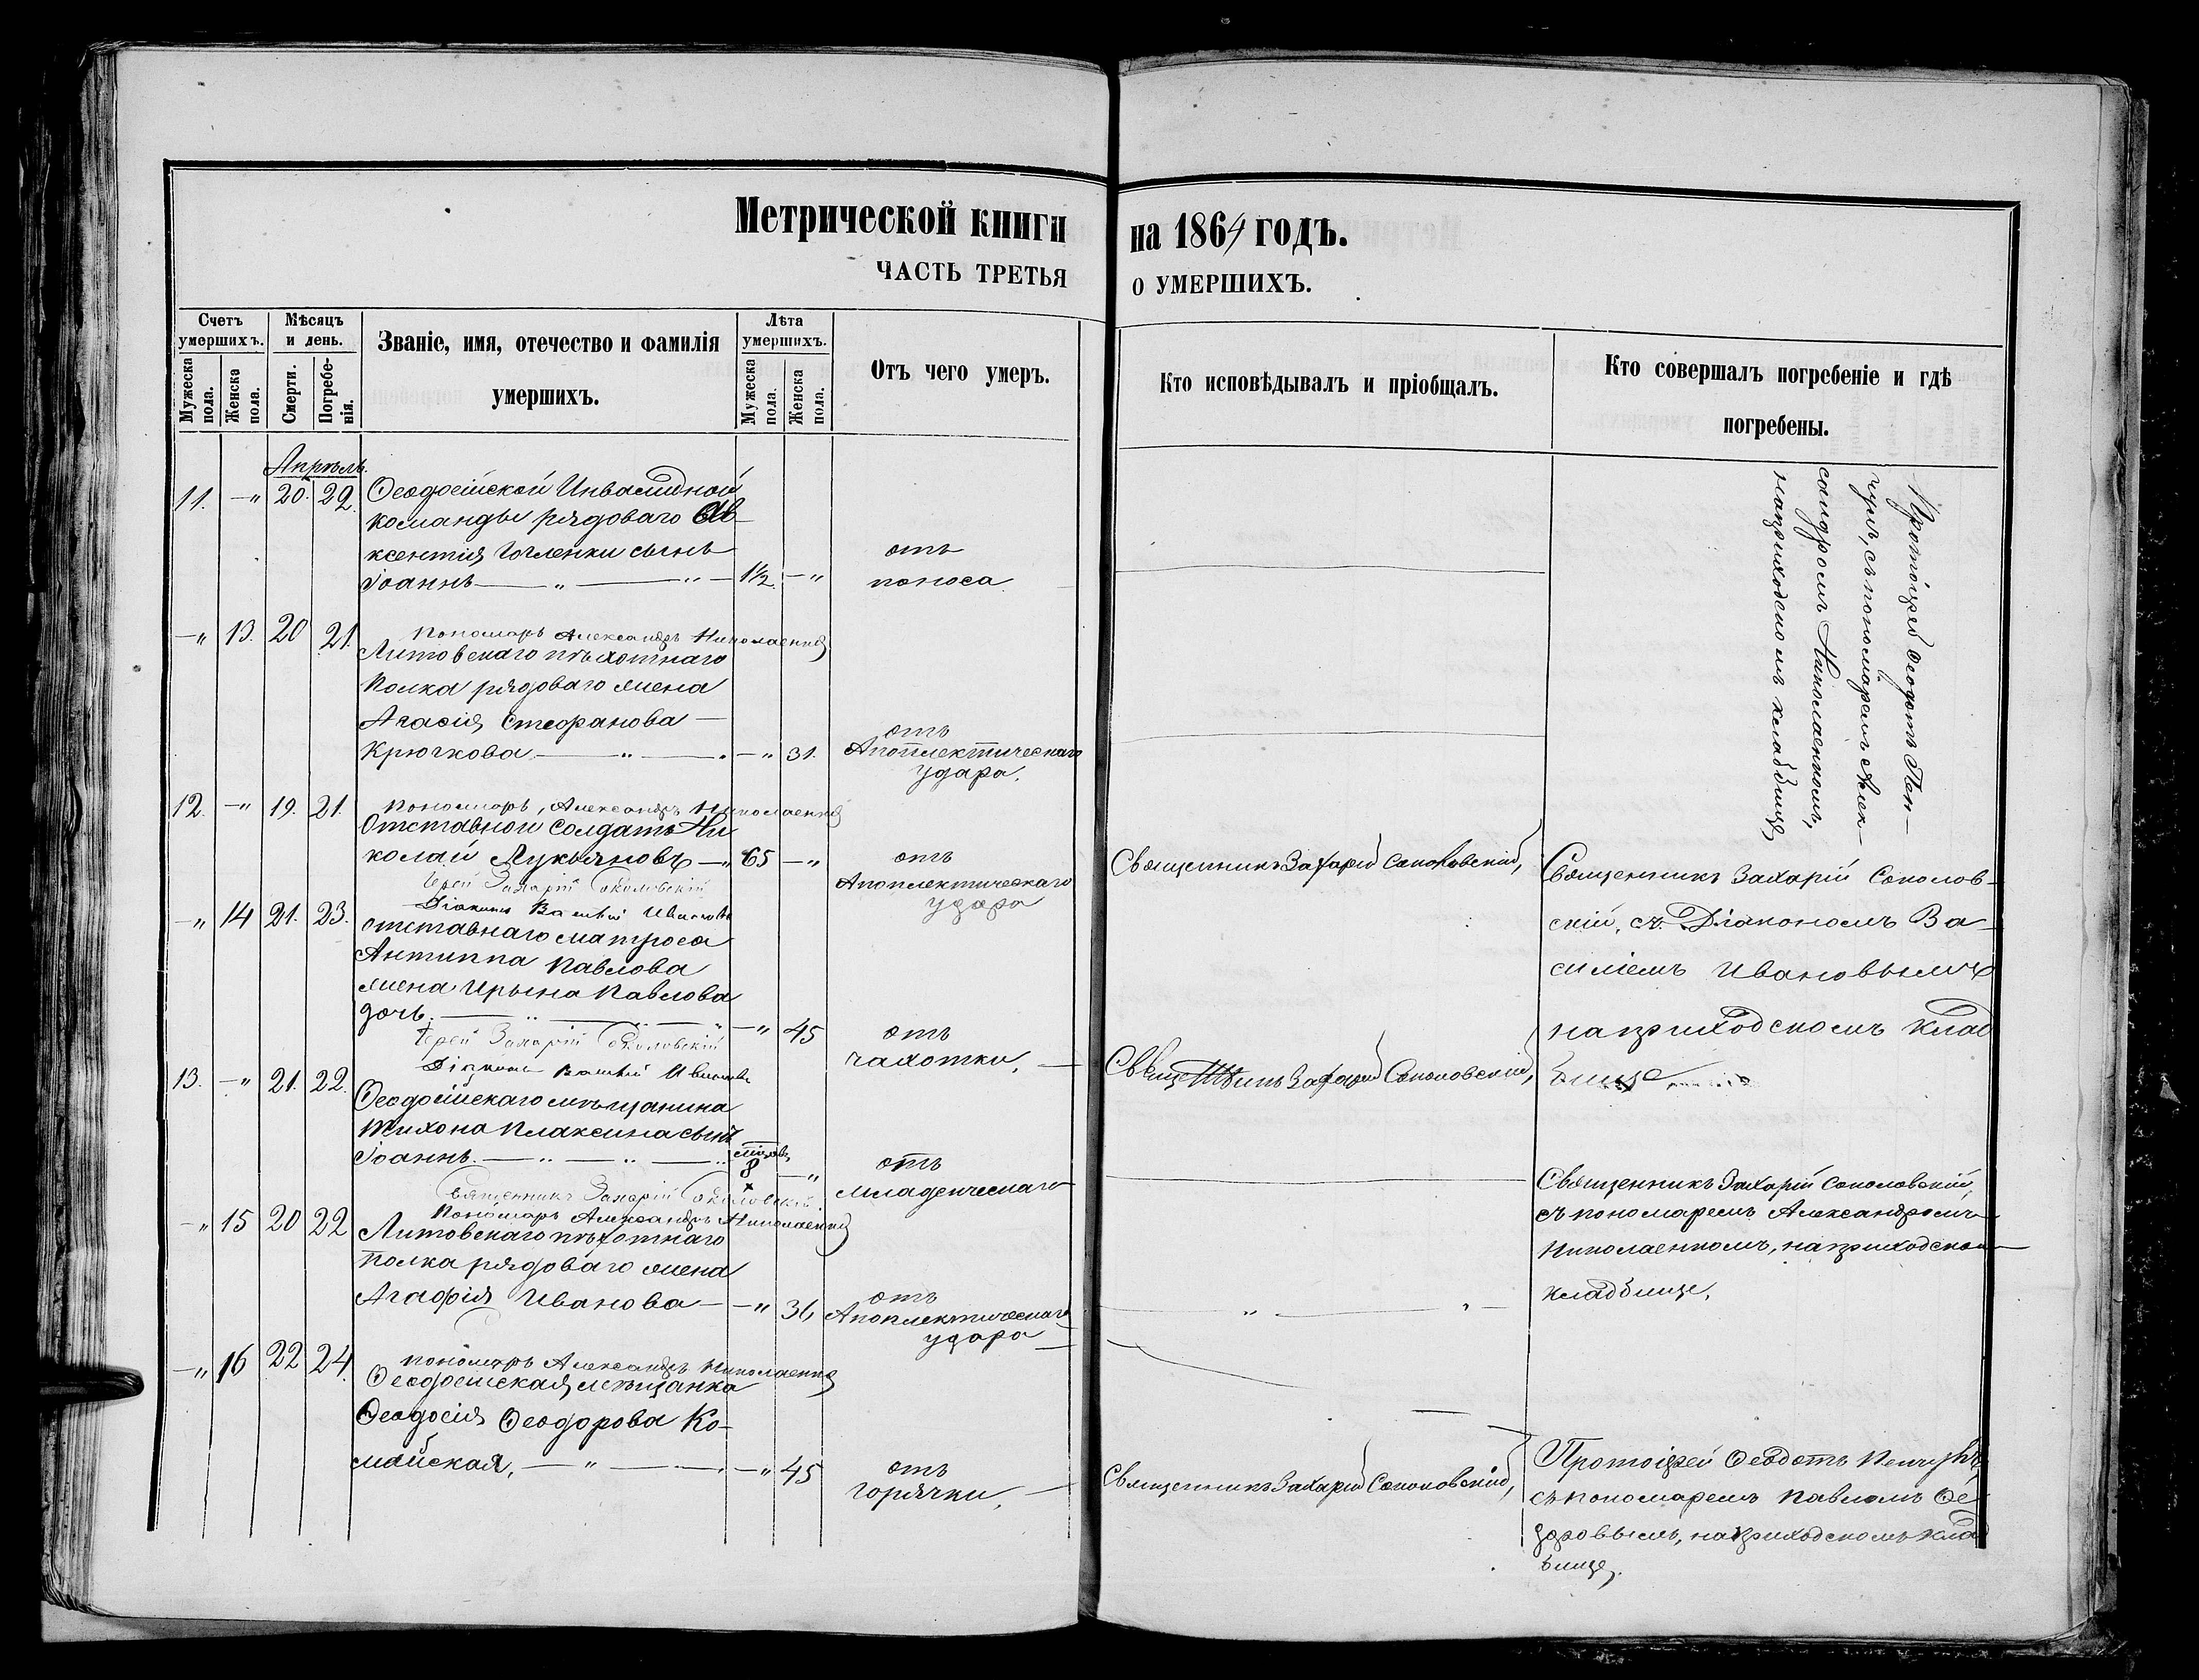 Метрической книги на 1864 годъ.
ЧАСТЬ ТРЕТЬЯ О УМЕРШИХЪ.
Счетъ умершихъ.
Мужеска пола.
Женска пола.
Мѣсяцъ и день.
Смерти.
Погребенія.
Званіе, имя, отечество и фамилія умершихъ.
Лѣта умершихъ.
Мужеска пола.
Женска пола.
Отъ чего умеръ.
Кто исповѣдывалъ и пріобщалъ.
Кто совершалъ погребеніе и гдѣ погребены.
Апрѣль.
11. —„ 20. 22. Ѳеодосійской Инвалидной
команды рядоваго Ав-
ксентія сынъ
Іоаннъ — „ — „ — 1½. —„
отъ
поноса.
Протоіерей Ѳеодотъ
съ пономаремъ Алек-
сандромъ Николаенкомъ,
на приходскомъ кладбище,
Пономарь Александръ Николаенко
—„ 13. 20 21. Литовскаго пѣхотнаго
Полка рядоваго жена
Агафія Стефанова —
Крючкова — „ — . —„ 31.
отъ
Апоплектическаго
удара.
12. —„ 19. 21. Пономарь, Александръ Николаенко
Отставной Солдатъ Ни
колай Лукьяновъ —„ 65 —„
отъ
Апоплектическаго
удара
Священникъ Захарій Соколовскій,
Священникъ Захарій Соколов-
скій, съ Діакономъ Ва-
силіемъ Ивановымъ
на приходскомъ клад
бище
Іерей Захарій Соколовскій
Діаконъ Василій Ивановъ
—„ 14 21. 23. отставнаго матроса
Антиппа Павлова
жена Ирына Павлова
дочь. — „ — „ — „ —„ 45
отъ
чахотки. —
Священникъ Захарій Соколовскій,
Іерей Захарій Соколовскій
Діаконъ Василій Ивановъ
13. —„ 21. 22. Ѳеодосійскаго мѣщанина
Тихона Плаксина сынъ
Іоаннъ. — „ — „ — „ 8 —„
отъ
младенческаго
Священникъ Захарій Соколовскій,
съ пономаремъ Александромъ
Николаенкомъ, на приходском
кладбище.
Священникъ Захарій Соколовскій.
Пономарь Александръ Николаенко
—„ 15 20 22 Литовскаго пѣхотнаго
полка рядоваго жена
Агафія Иванова — —„ 36,
отъ
Апоплектическаго
удара
Пономарь Александръ Николаенко
—„ 16 22 24. Ѳеодосійская мѣщанка
Ѳеодосія Ѳеодорова Ко-
майская, — „ — . —„ 45
отъ
горячки.
Священникъ Захарій Соколовскій,
Протоіерей Ѳеодотъ
съ пономаремъ Павломъ Ѳе
доровымъ, на приходскомъ клад
бище.